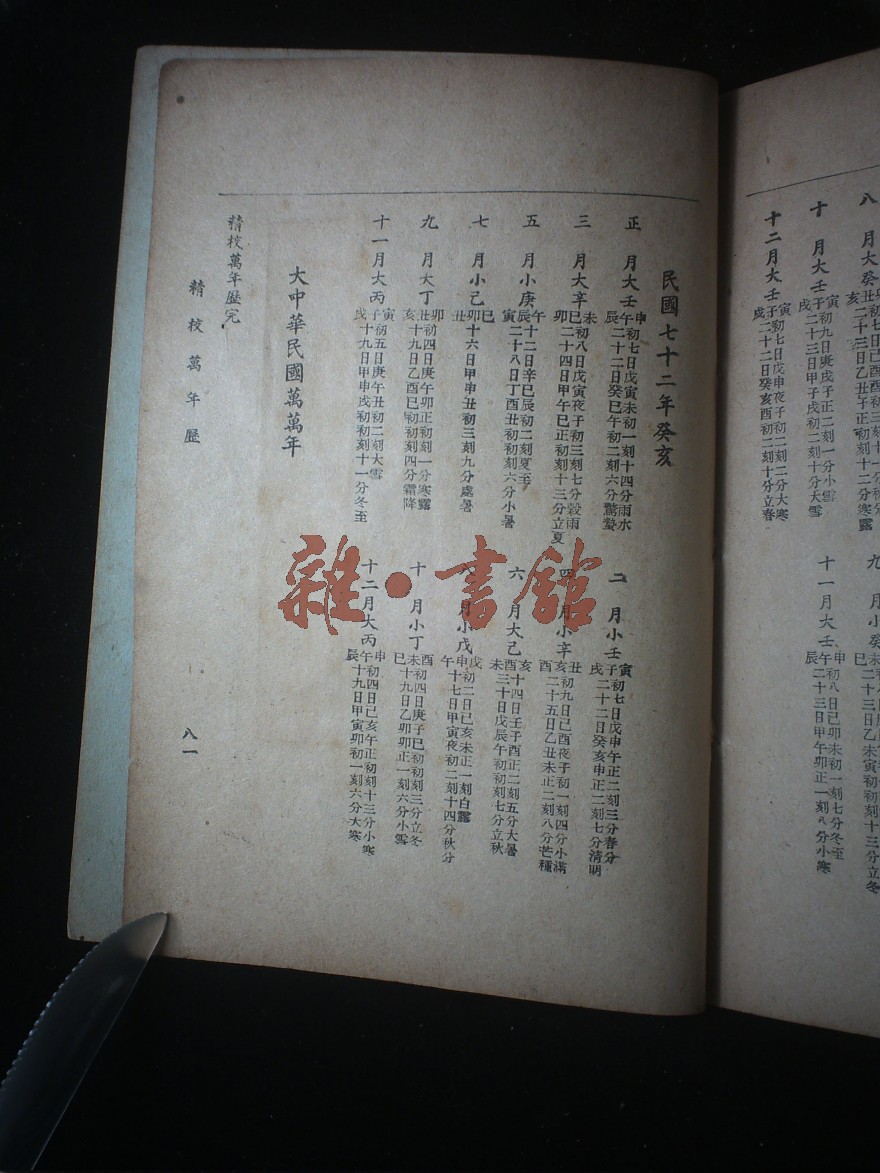 八 月大癸卯丑亥
初八日己酉
二十三日乙丑午正初刻十二分寒露
九 月小癸未巳
二十三日乙未寅初初刻十三分立冬
十 月大壬子
寅初九日庚戌子正二刻一分小雪
戌二十三日甲子戌初二刻十分大雪
十一月大壬午
申初八日己卯未初一刻七分冬至
辰二十三日甲午卯正一刻八分小寒
十二月大壬子
寅初七日戊申夜子初二刻二分大寒
戌二十二日癸亥酉初二刻十分立春
民國七十二年癸亥
正 月大壬午
申初七日戊寅未初一刻十四分雨水
辰二十二日癸巳午初二刻六分驚蟄
二 月小壬子
寅初七日戊申午正二刻三分春分
戌二十二日癸亥申正二刻七分清明
三 月大辛巳
未初八日戊寅夜子初三刻七分穀雨
卯二十四日甲午巳正初刻十三分立夏
四 月小辛亥
丑初九日己酉夜子初一刻四分小滿
酉二十五日乙丑未正二刻八分芒種
五 月小庚辰
午十二日辛巳辰初二刻夏至
寅二十八日丁酉丑初初刻六分小暑
六 月大己酉
亥十四日壬子酉正二刻五分大暑
未三十日戊辰午初初刻七分立秋
七 月小己卯
巳十六日甲申丑初三刻九分處暑
丑
八 月小戊申
戌初二日己亥未正一刻白露
午十七日甲寅夜初二刻十四分秋分
九 月大丁丑
卯初四日庚午卯正初刻一分寒露
亥十九日乙酉巳初初刻四分霜降
十 月小丁未
酉初四日庚子巳初初刻三分立冬
巳十九日乙卯卯正一刻六分小雪
十一月大丙子
寅初五日庚午丑初二刻大雪
戌十九日甲申戌初初刻十一分冬至
十二月大丙午
申初四日己亥午正初刻十三分小寒
辰十九日甲寅卯初一刻六分大寒
大中華民國萬萬年
精校萬年歷完
精校萬年歷
八一
雜·書館